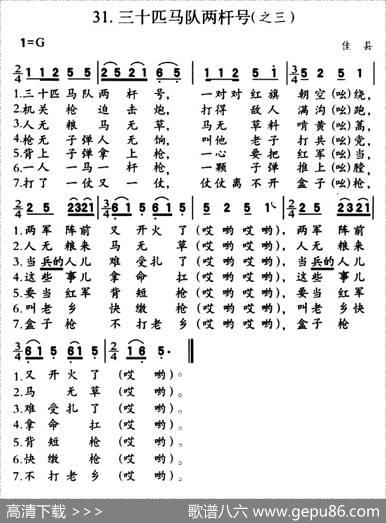 31. 三十匹马队两杆号(之三)
1=G 佳 县
2/4 1 1 2 5 | 2 5 2 1 6· 5· | 1 1 2 5 i | 3/4 5 2 5· |
1.三十匹马队 两 杆 号, 一对对红旗 朝空(吆)绕,
2.机关 枪 迫击 炮, 打得 敌人 满沟(吆)跑,
3.人无 粮 马无 草, 马无 草料 啃黄(吆)蒿,
4.枪无 子弹人 无 饷, 叫他 老子 打共(吆)党,
5.背上 子弹拿 上 枪, 一心 要把 红军(吆)当,
6.一人 一马一 杆 枪, 一颗 子弹 推上(吆)膛,
7.打了 一仗又 一 仗, 仗仗离不开 盒子(吆)枪,
2/4 2 5 2321 | 3/4 6 1 5 6 1 5 | 5 2 5 1 | 2/4 2 5 2321 |
1.两军 阵前 又 开火 了 (哎 哟哎 哟), 两军 阵前
2.人无 粮来 马 无 草 (哎 哟哎 哟), 人无 粮来
3.当兵的人儿 难 受扎 了 (哎 哟哎 哟), 当兵的人儿
4.这些 事儿 拿 命 扛 (哎 哟哎 哟), 这些 事儿
5.要当 红军 背 短 枪 (哎 哟哎 哟), 要当 红军
6.叫老 乡 快 缴 枪 (哎 哟哎 哟), 叫老 乡快
7.盒子 枪 不 打老 乡 (哎 哟哎 哟), 盒子 枪
3/4 6 1 5 6 1 5 | 2/4 1 6 5· ‖
1.又 开 火 了 (哎 哟)。
2.马 无 草 (哎 哟)。
3.难 受 扎 了 (哎 哟)。
4.拿 命 扛 (哎 哟)。
5.背 短 枪 (哎 哟)。
6.快 缴 枪 (哎 哟)。
7.不 打 老 乡 (哎 哟)。
高清下载 >>> 歌谱八六 www.gepu86.com